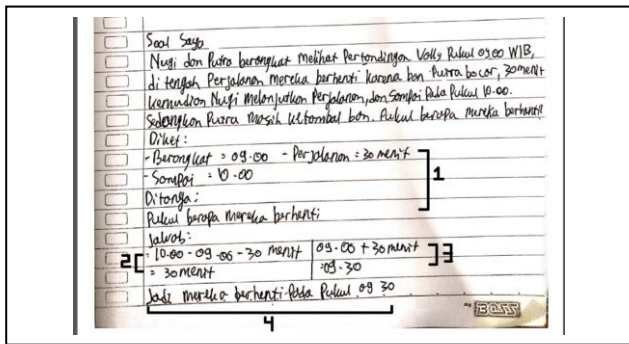 Soal Saya
Nugi dan Putra berangkat melihat Pertandingan Volly Pukul 09.00 WIB,
di tengah Perjalanan mereka berhenti karena ban Putra bocor, 30 menit
kemudian Nugi melanjutkan Perjalanan, dan Sampai Pada Pukul 10.00.
Sedangkan Putra masih ke tambal ban. Pukul berapa mereka berhenti
Diket:
- Berangkat = 09.00 - Perjalanan = 30 menit
- Sampai = 10.00
1
Ditanya:
Pukul berapa mereka berhenti
Jawab:
2 = 10.00 - 09.00 - 30 menit 09.00 + 30 menit 3
= 30 menit =09.30
Jadi mereka berhenti Pada Pukul 09 30
4
BOSS